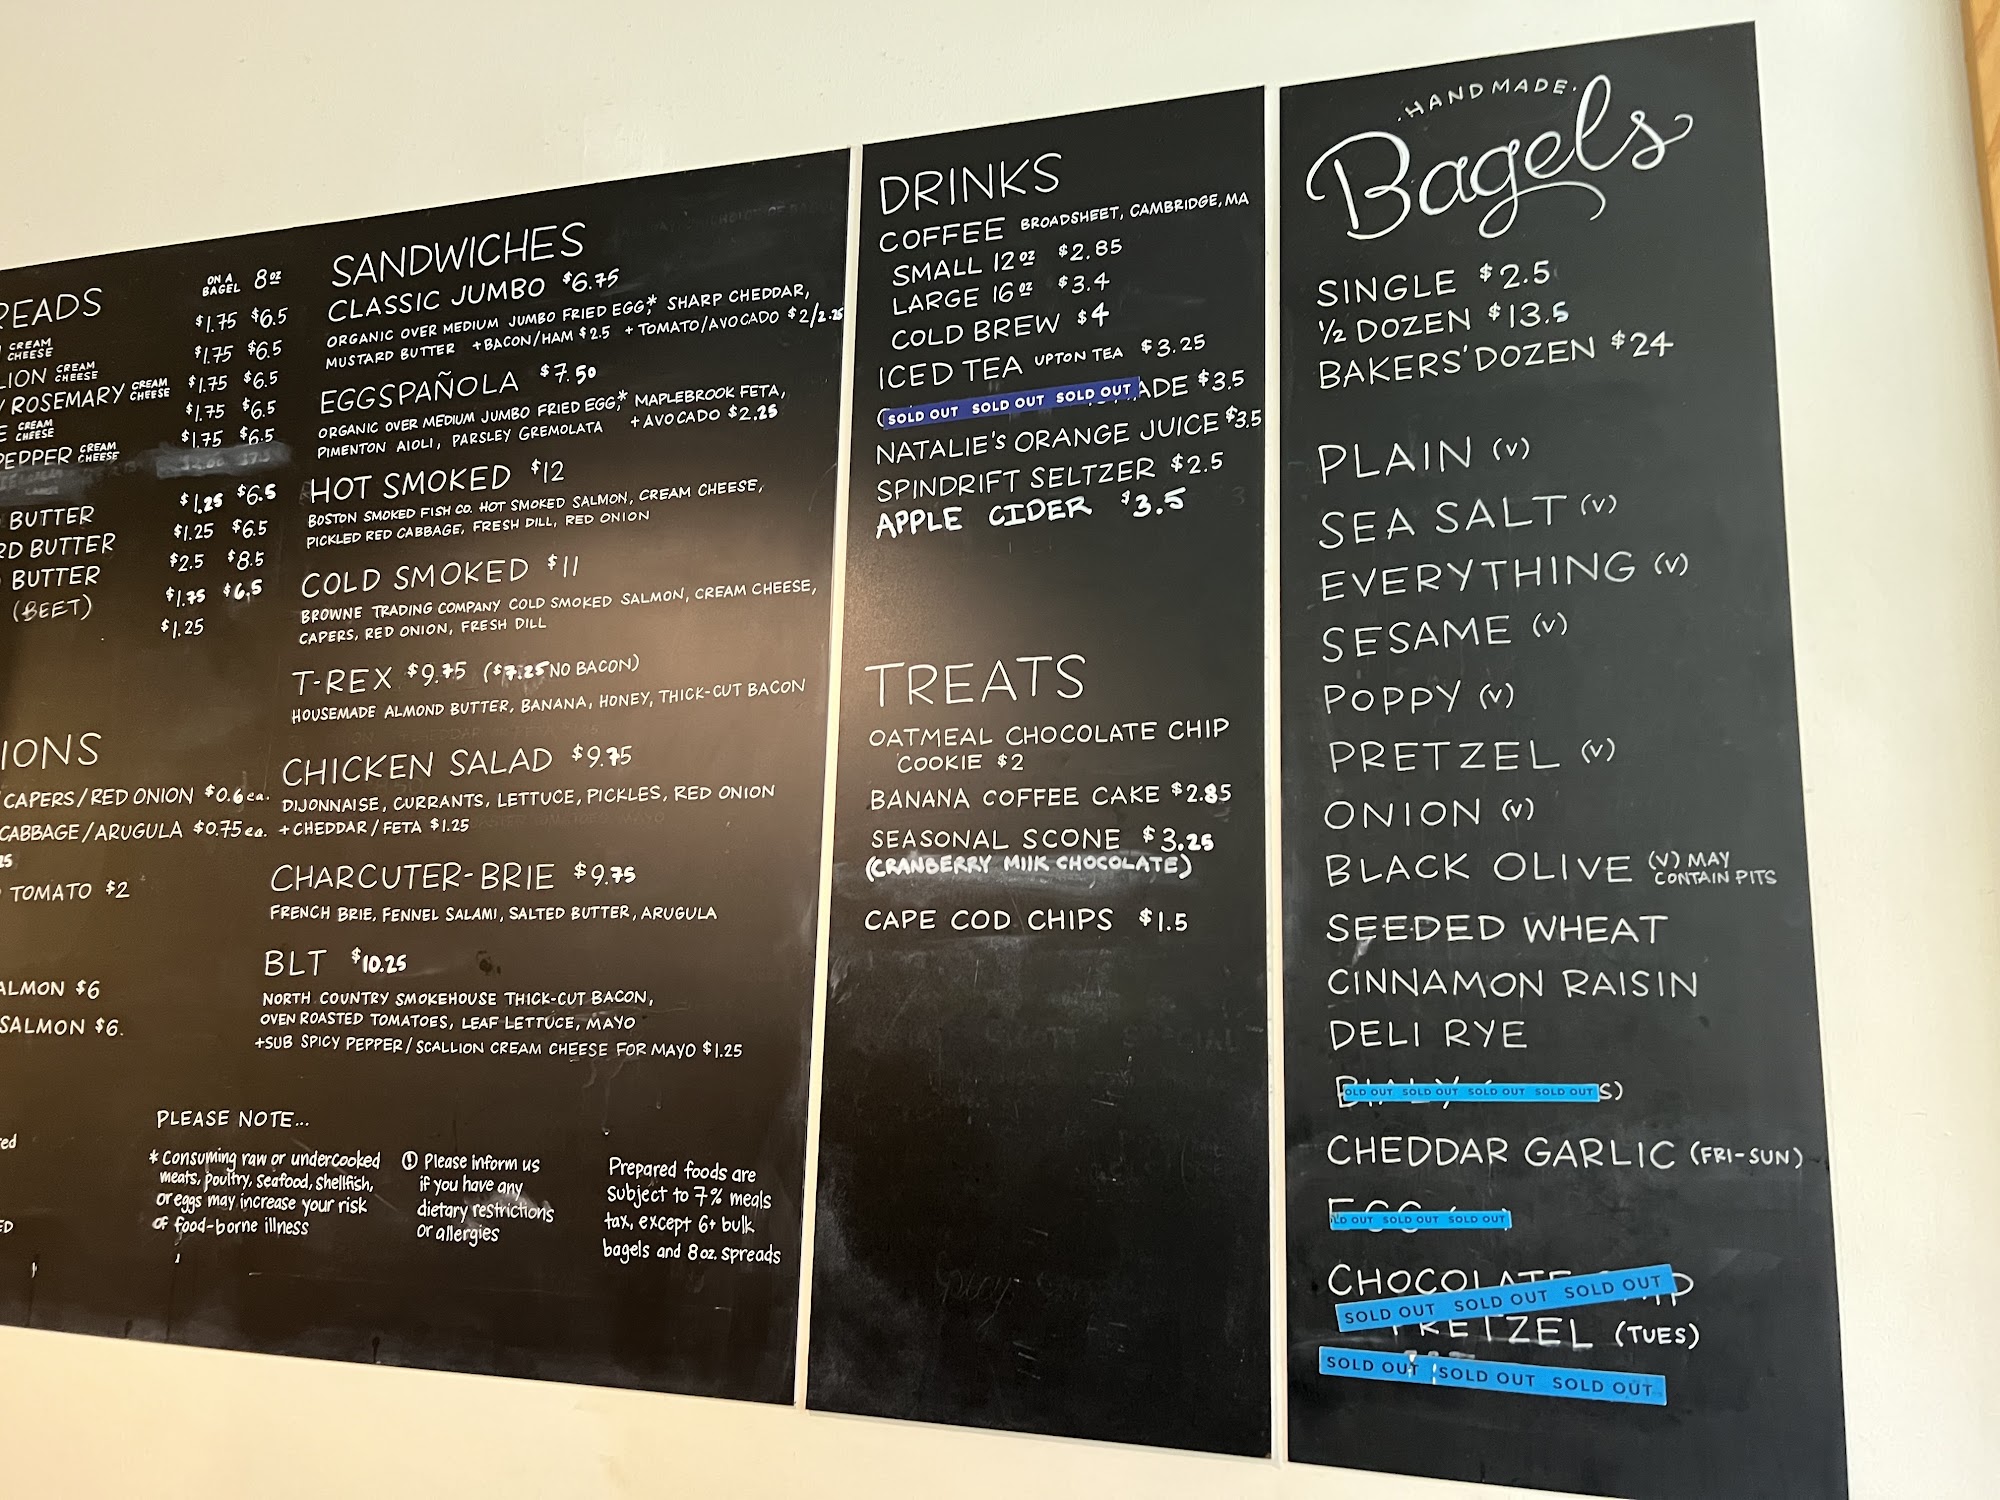 READS
ON A
BAGEL 8 oz
$1.75 $6.5
CREAM
CHEESE $1.75 $6.5
LION CREAM
CHEESE $1.75 $6.5
ROSEMARY CREAM
CHEESE $1.75 $6.5
CREAM
CHEESE $1.75 $6.5
PEPPER CREAM
CHEESE
BUTTER $1.25 $6.5
RD BUTTER $1.25 $6.5
BUTTER $2.5 $8.5
(BEET) $1.75 $6.5
$1.25
IONS
CAPERS/RED ONION $0.6 ea.
CABBAGE/ARUGULA $0.75 ea.
TOMATO $2
ALMON $6
SALMON $6.
SANDWICHES
CLASSIC JUMBO $6.75
ORGANIC OVER MEDIUM JUMBO FRIED EGG,* SHARP CHEDDAR,
MUSTARD BUTTER +BACON/HAM $2.5 +TOMATO/AVOCADO $2/2.25
EGGSPAÑOLA $7.50
ORGANIC OVER MEDIUM JUMBO FRIED EGG,* MAPLEBROOK FETA,
PIMENTON AIOLI, PARSLEY GREMOLATA +AVOCADO $2.25
HOT SMOKED $12
BOSTON SMOKED FISH CO. HOT SMOKED SALMON, CREAM CHEESE,
PICKLED RED CABBAGE, FRESH DILL, RED ONION
COLD SMOKED $11
BROWNE TRADING COMPANY COLD SMOKED SALMON, CREAM CHEESE,
CAPERS, RED ONION, FRESH DILL
T-REX $9.75 ($7.25 NO BACON)
HOUSEMADE ALMOND BUTTER, BANANA, HONEY, THICK-CUT BACON
CHICKEN SALAD $9.75
DIJONNAISE, CURRANTS, LETTUCE, PICKLES, RED ONION
+CHEDDAR/FETA $1.25
CHARCUTER-BRIE $9.75
FRENCH BRIE, FENNEL SALAMI, SALTED BUTTER, ARUGULA
BLT $10.25
NORTH COUNTRY SMOKEHOUSE THICK-CUT BACON,
OVEN ROASTED TOMATOES, LEAF LETTUCE, MAYO
+SUB SPICY PEPPER/SCALLION CREAM CHEESE FOR MAYO $1.25
PLEASE NOTE...
* Consuming raw or undercooked
meats, poultry, seafood, shellfish,
or eggs may increase your risk
of food-borne illness
Please inform us
if you have any
dietary restrictions
or allergies
Prepared foods are
subject to 7% meals
tax, except 6+ bulk
bagels and 8 oz. spreads
DRINKS
COFFEE BROADSHEET, CAMBRIDGE, MA
SMALL 12 oz $2.85
LARGE 16 oz $3.4
COLD BREW $4
ICED TEA UPTON TEA $3.25
SOLD OUT SOLD OUT SOLD OUT ADE $3.5
NATALIE'S ORANGE JUICE $3.5
SPINDRIFT SELTZER $2.5
APPLE CIDER $3.5
TREATS
OATMEAL CHOCOLATE CHIP
COOKIE $2
BANANA COFFEE CAKE $2.85
SEASONAL SCONE $3.25
(CRANBERRY MIlK CHOCOLATE)
CAPE COD CHIPS $1.5
·HANDMADE·
Bagels
SINGLE $2.5
1/2 DOZEN $13.5
BAKERS' DOZEN $24
PLAIN (V)
SEA SALT (V)
EVERYTHING (V)
SESAME (V)
POPPY (V)
PRETZEL (V)
ONION (V)
BLACK OLIVE (V) MAY
CONTAIN PITS
SEEDED WHEAT
CINNAMON RAISIN
DELI RYE
OLD OUT SOLD OUT SOLD OUT SOLD OUT S)
CHEDDAR GARLIC (FRI-SUN)
LD OUT SOLD OUT SOLD OUT
CHOCOLATE
SOLD OUT SOLD OUT SOLD OUT
PRETZEL (TUES)
SOLD OUT SOLD OUT SOLD OUT